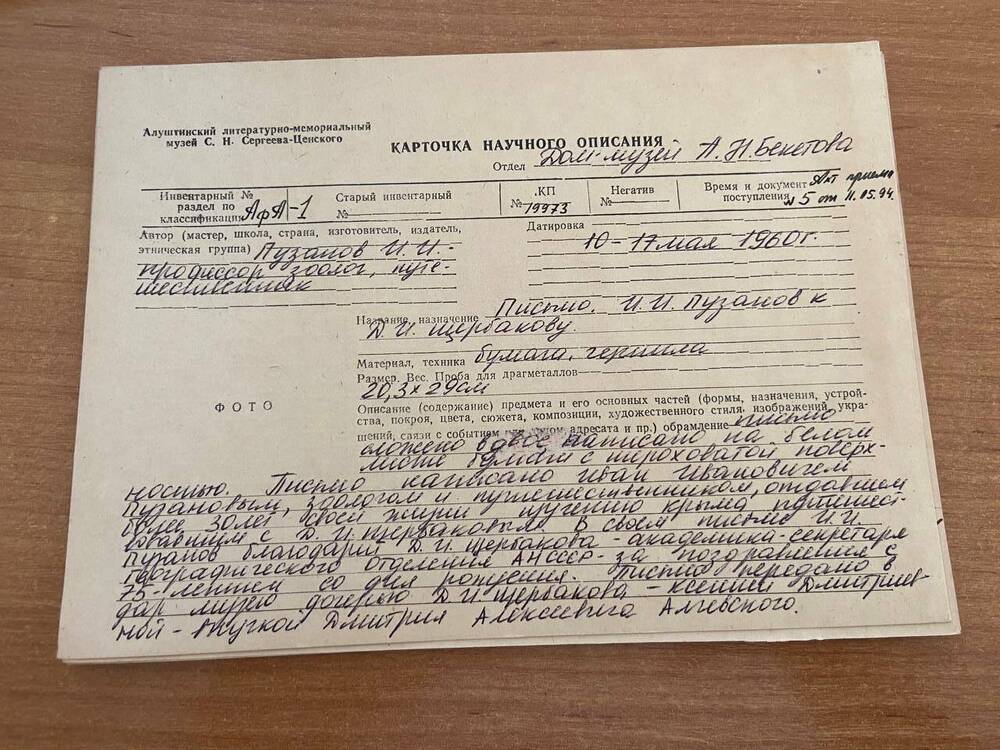 Алуштинский литературно-мемориальный
музей С. Н. Сергеева-Ценского
КАРТОЧКА НАУЧНОГО ОПИСАНИЯ
Отдел Дом-музей А.Н.Бекетова
Инвентарный №
раздел по
классификации АфА-1
Старый инвентарный
№
КП
№ 19973
Негатив
№
Время и документ Акт приема
поступления №5 от 11.05.94.
Автор (мастер, школа, страна, изготовитель, издатель,
этническая группа) Пузанов И. И. -
профиссор зоолог, путе-
шественник
Датировка
10-17 мая 1960г.
Название, назначение Письмо. И.И. Пузанов к
Д.И. Щербакову.
Материал, техника бумага, чернила
Размер. Вес. Проба для драгметаллов
20,3х29см
ФОТО
Описание (содержание) предмета и его основных частей (формы, назначения, устрой-
ства, покроя, цвета, сюжета, композиции, художественного стиля, изображений, укра-
шений, связи с событием адресата и пр.) обрамление письмо
сложено вдвое написано на белом
листе бумаги с шероховатой поверх-
ностью. Письмо написано Иван Ивановичем
Пузановым, зоологом и путешественником, отдавшем
более 30 лет своей жизни изучению Крыма, путешест-
вовавшим с Д.И. Щербаковым. В своем письме И.И.
Пузанов благодарит Д.И. Щербакова - академика-секретаря
географического отделения АН СССР - за поздравления с
75-летием со дня рождения. Письмо передано в
дар музею дочерью Д.И. Щербакова - Ксенией Дмитриев-
ной - внучкой Дмитрия Алексеевича Алчевского.